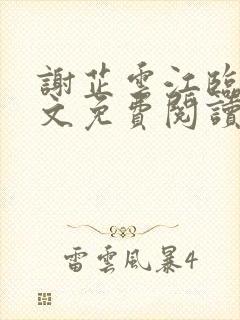 謝芷雲江臨
文免費閱讀
雷雲風暴4